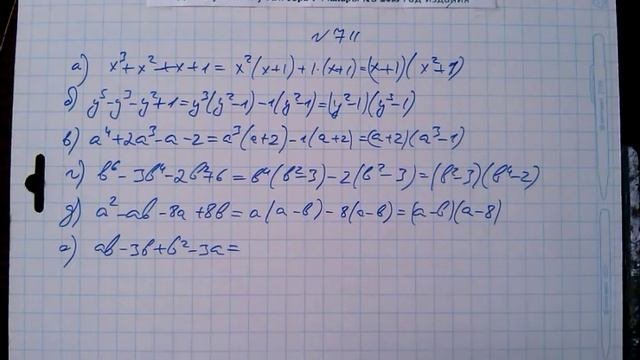 № 711
а) x³+x²+x+1 = x²(x+1)+1·(x+1)=(x+1)(x²+1)
б) y⁵-y³-y²+1=y³(y²-1)-1(y²-1)=(y²-1)(y³-1)
в) a⁴+2a³-a-2=a³(a+2)-1(a+2)=(a+2)(a³-1)
г) b⁶-3b⁴-2b²+6 = b⁴(b²-3)-2(b²-3)=(b²-3)(b⁴-2)
д) a²-ab-8a+8b= a(a-b)-8(a-b)=(a-b)(a-8)
е) ab-3b+b²-3a=